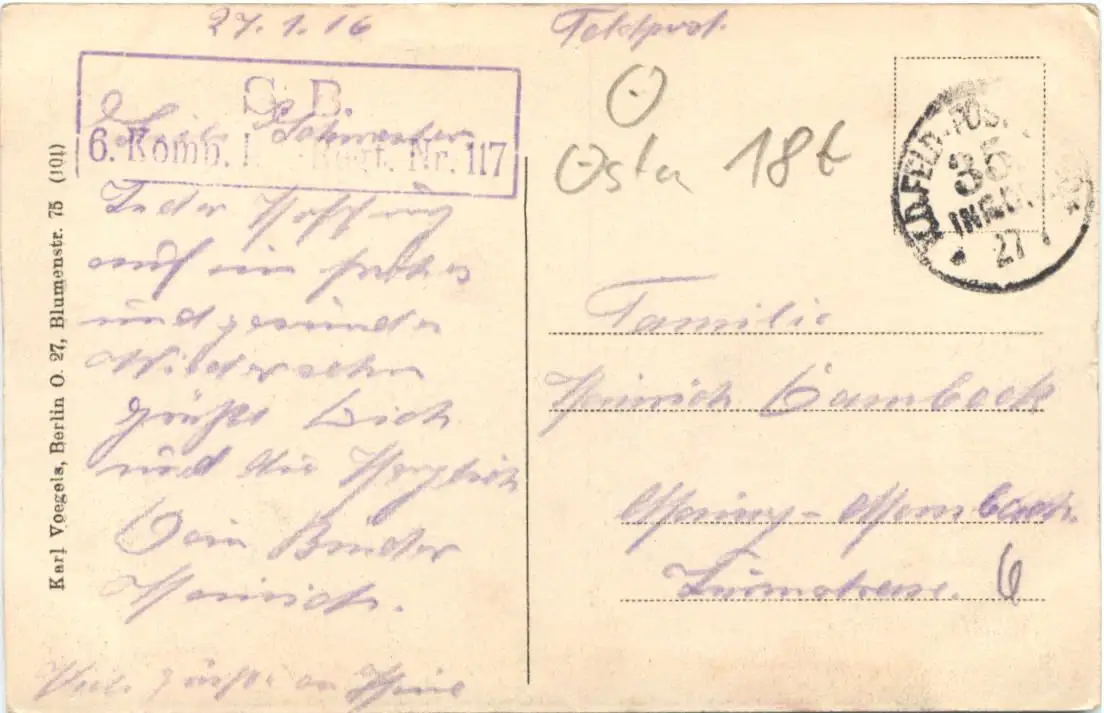 27.1.16
Feldpost.
S. B.
6. Komp. Regt. Nr. 117
Liebe Schwester
In der Hoffnung
auf ein frohes
und gesundes
Wiedersehn
grüßt Dich
und die Herzlich
Dein Bruder
Heinrich.
Viele grüße an
Karl Voegels, Berlin O. 27, Blumenstr. 75 (101)
18t
FELD-POST
35
27 1
Familie
Heinrich
Mainz - Mombach
6